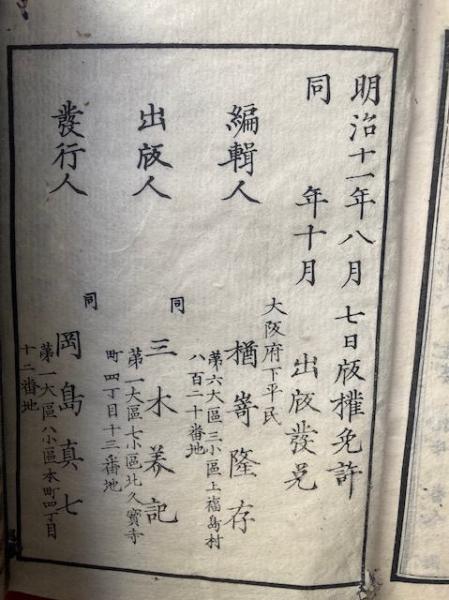 明治十一年八月七日版權免許
同年十月出版發兌
大阪府下平民
編輯人楢嵜隆存
第六大區三小區上福島村
八百二十番地
同
出版人三木養記
第一大區七小區北久寳寺
町四丁目十三番地
同
發行人岡島真七
第一大區八小區本町四丁目
十二番地